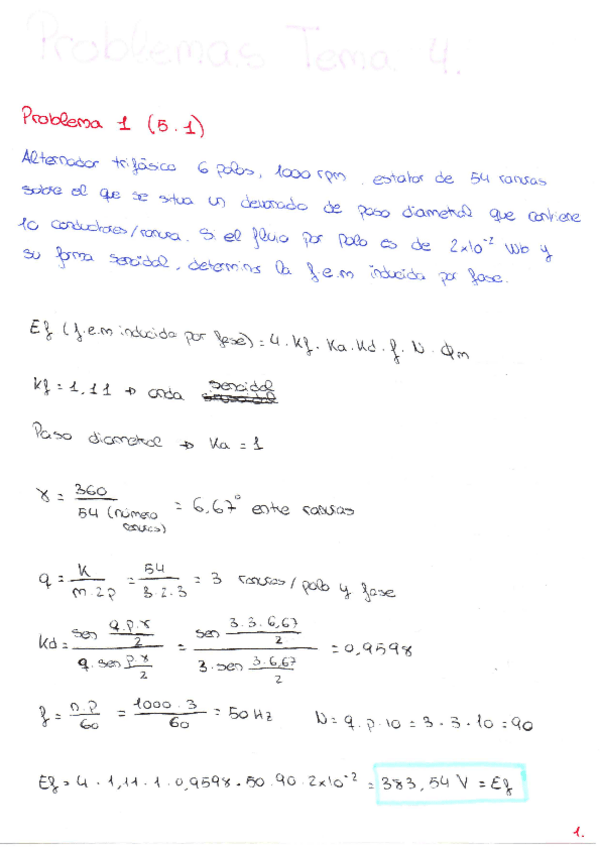 Problemas Tema 4.
Problema 1 (5.1)
Alternador trifásico 6 polos, 1000 rpm, estator de 54 ranuras
sobre el que se situa un devanado de paso diametral que contiene
10 conductores/ranura. Si el flujo por polo es de 2x10⁻² Wb y
su forma senoidal, determina la f.e.m inducida por fase.
Ef (f.e.m inducida por fase) = 4 · Kf · Ka · Kd · f · N · Φm
Kf = 1,11 → onda senoidal
Paso diametral → Ka = 1
γ = 360 / 54 (número ranuras) = 6,67° entre ranuras
q = K / m · 2p = 54 / 3 · 2 · 3 = 3 ranuras / polo y fase
Kd = sen q·p·γ/2 / q · sen p·γ/2 = sen 3·3·6,67/2 / 3 · sen 3·6,67/2 = 0,9598
f = n·p / 60 = 1000 · 3 / 60 = 50 Hz N = q · p · 10 = 3 · 3 · 10 = 90
Ef = 4 · 1,11 · 1 · 0,9598 · 50 · 90 · 2x10⁻² = 383,54 V = Ef
1.